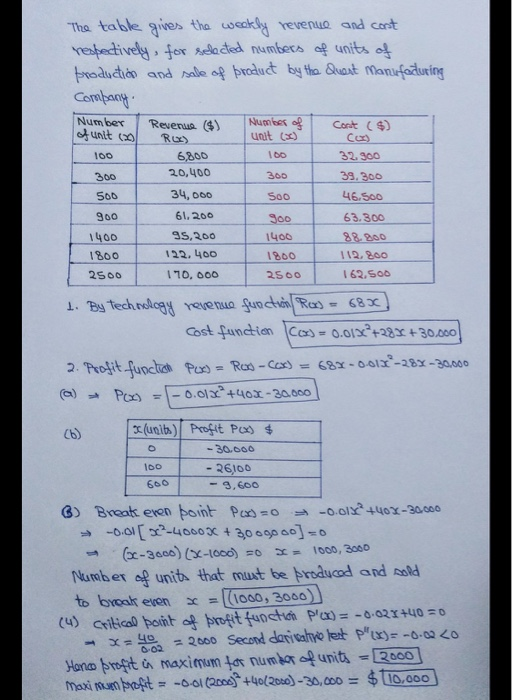 The table gives the weekly revenue and cost
respectively, for selected numbers of units of
production and sale of product by the Quest Manufacturing
Company.
Number of unit (x) | Revenue ($) R(x) | Number of unit (x) | Cost ($) C(x)
100 | 6,800 | 100 | 32,900
300 | 20,400 | 300 | 39,300
500 | 34,000 | 500 | 46,500
900 | 61,200 | 900 | 63,300
1400 | 95,200 | 1400 | 88,800
1800 | 122,400 | 1800 | 112,800
2500 | 170,000 | 2500 | 162,500
1. By Technology revenue function R(x) = 68x
Cost function C(x) = 0.01x²+28x+30,000
2. Profit function P(x) = R(x) - C(x) = 68x - 0.01x² - 28x - 30,000
(a) ⇒ P(x) = -0.01x²+40x-30,000
(b) x(units) | Profit P(x) $
0 | -30,000
100 | -26,100
600 | -9,600
(3) Break even point P(x)=0 ⇒ -0.01x²+40x-30,000
⇒ -0.01[x²-4000x+3,000,000]=0
⇒ (x-3000)(x-1000)=0 x = 1000, 3000
Number of units that must be produced and sold
to break even x = (1000, 3000)
(4) Critical point of profit function P'(x) = -0.02x+40=0
⇒ x = 40/0.02 = 2000 Second derivative test P"(x) = -0.02 <0
Hence profit is maximum for number of units = 2000
Maximum profit = -0.01(2000)²+40(2000)-30,000 = $ 10,000